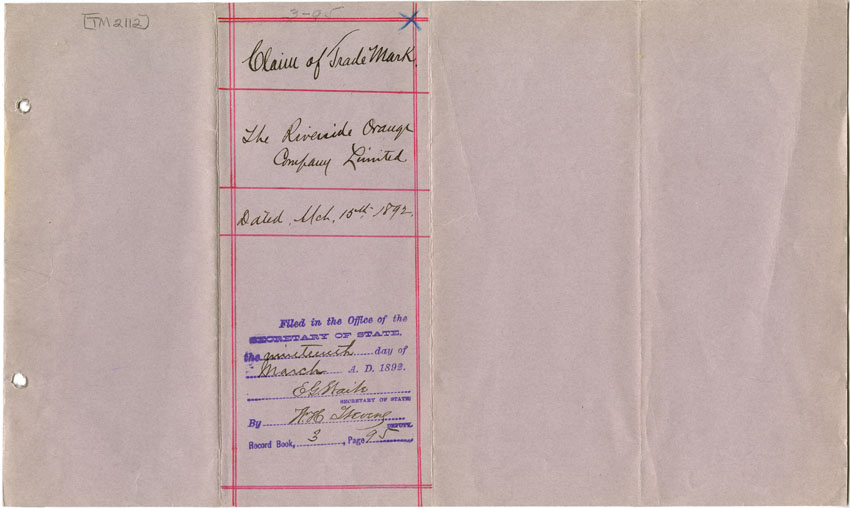 [TM2112]
3-95
Claim of Trade Mark.
The Riverside Orange
Company Limited
Dated Mch. 15th 1892.
Filed in the Office of the
SECRETARY OF STATE,
the nineteenth day of
March A. D. 1892.
E G Waite
SECRETARY OF STATE
By W H
DEPUTY.
Record Book, 3, Page 95